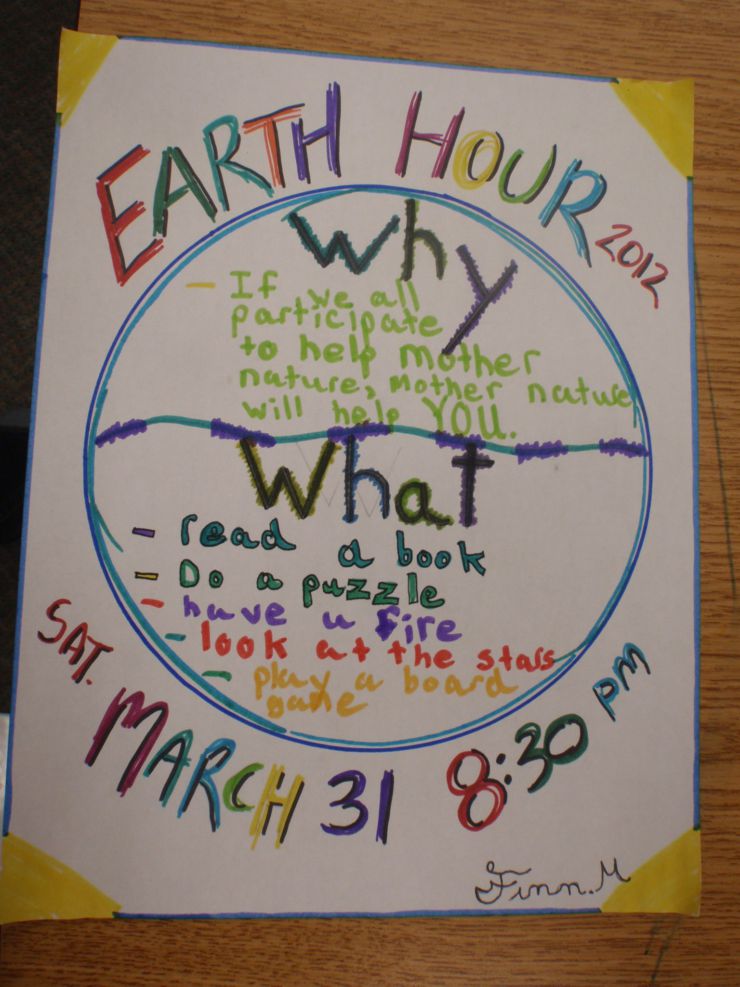 EARTH HOUR 2012
Why
- If we all
participate
to help mother
nature, Mother nature
will help YOU.
What
- read a book
- Do a puzzle
- have a fire
- look at the stars
- play a board
game
SAT. MARCH 31 8:30 PM
Finn.M